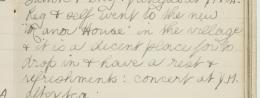 Reg & self went to the new
"Manor House" in the village
& it is a decent place for to
drop in & have a rest &
refreshments: concert at J.H.
after tea.